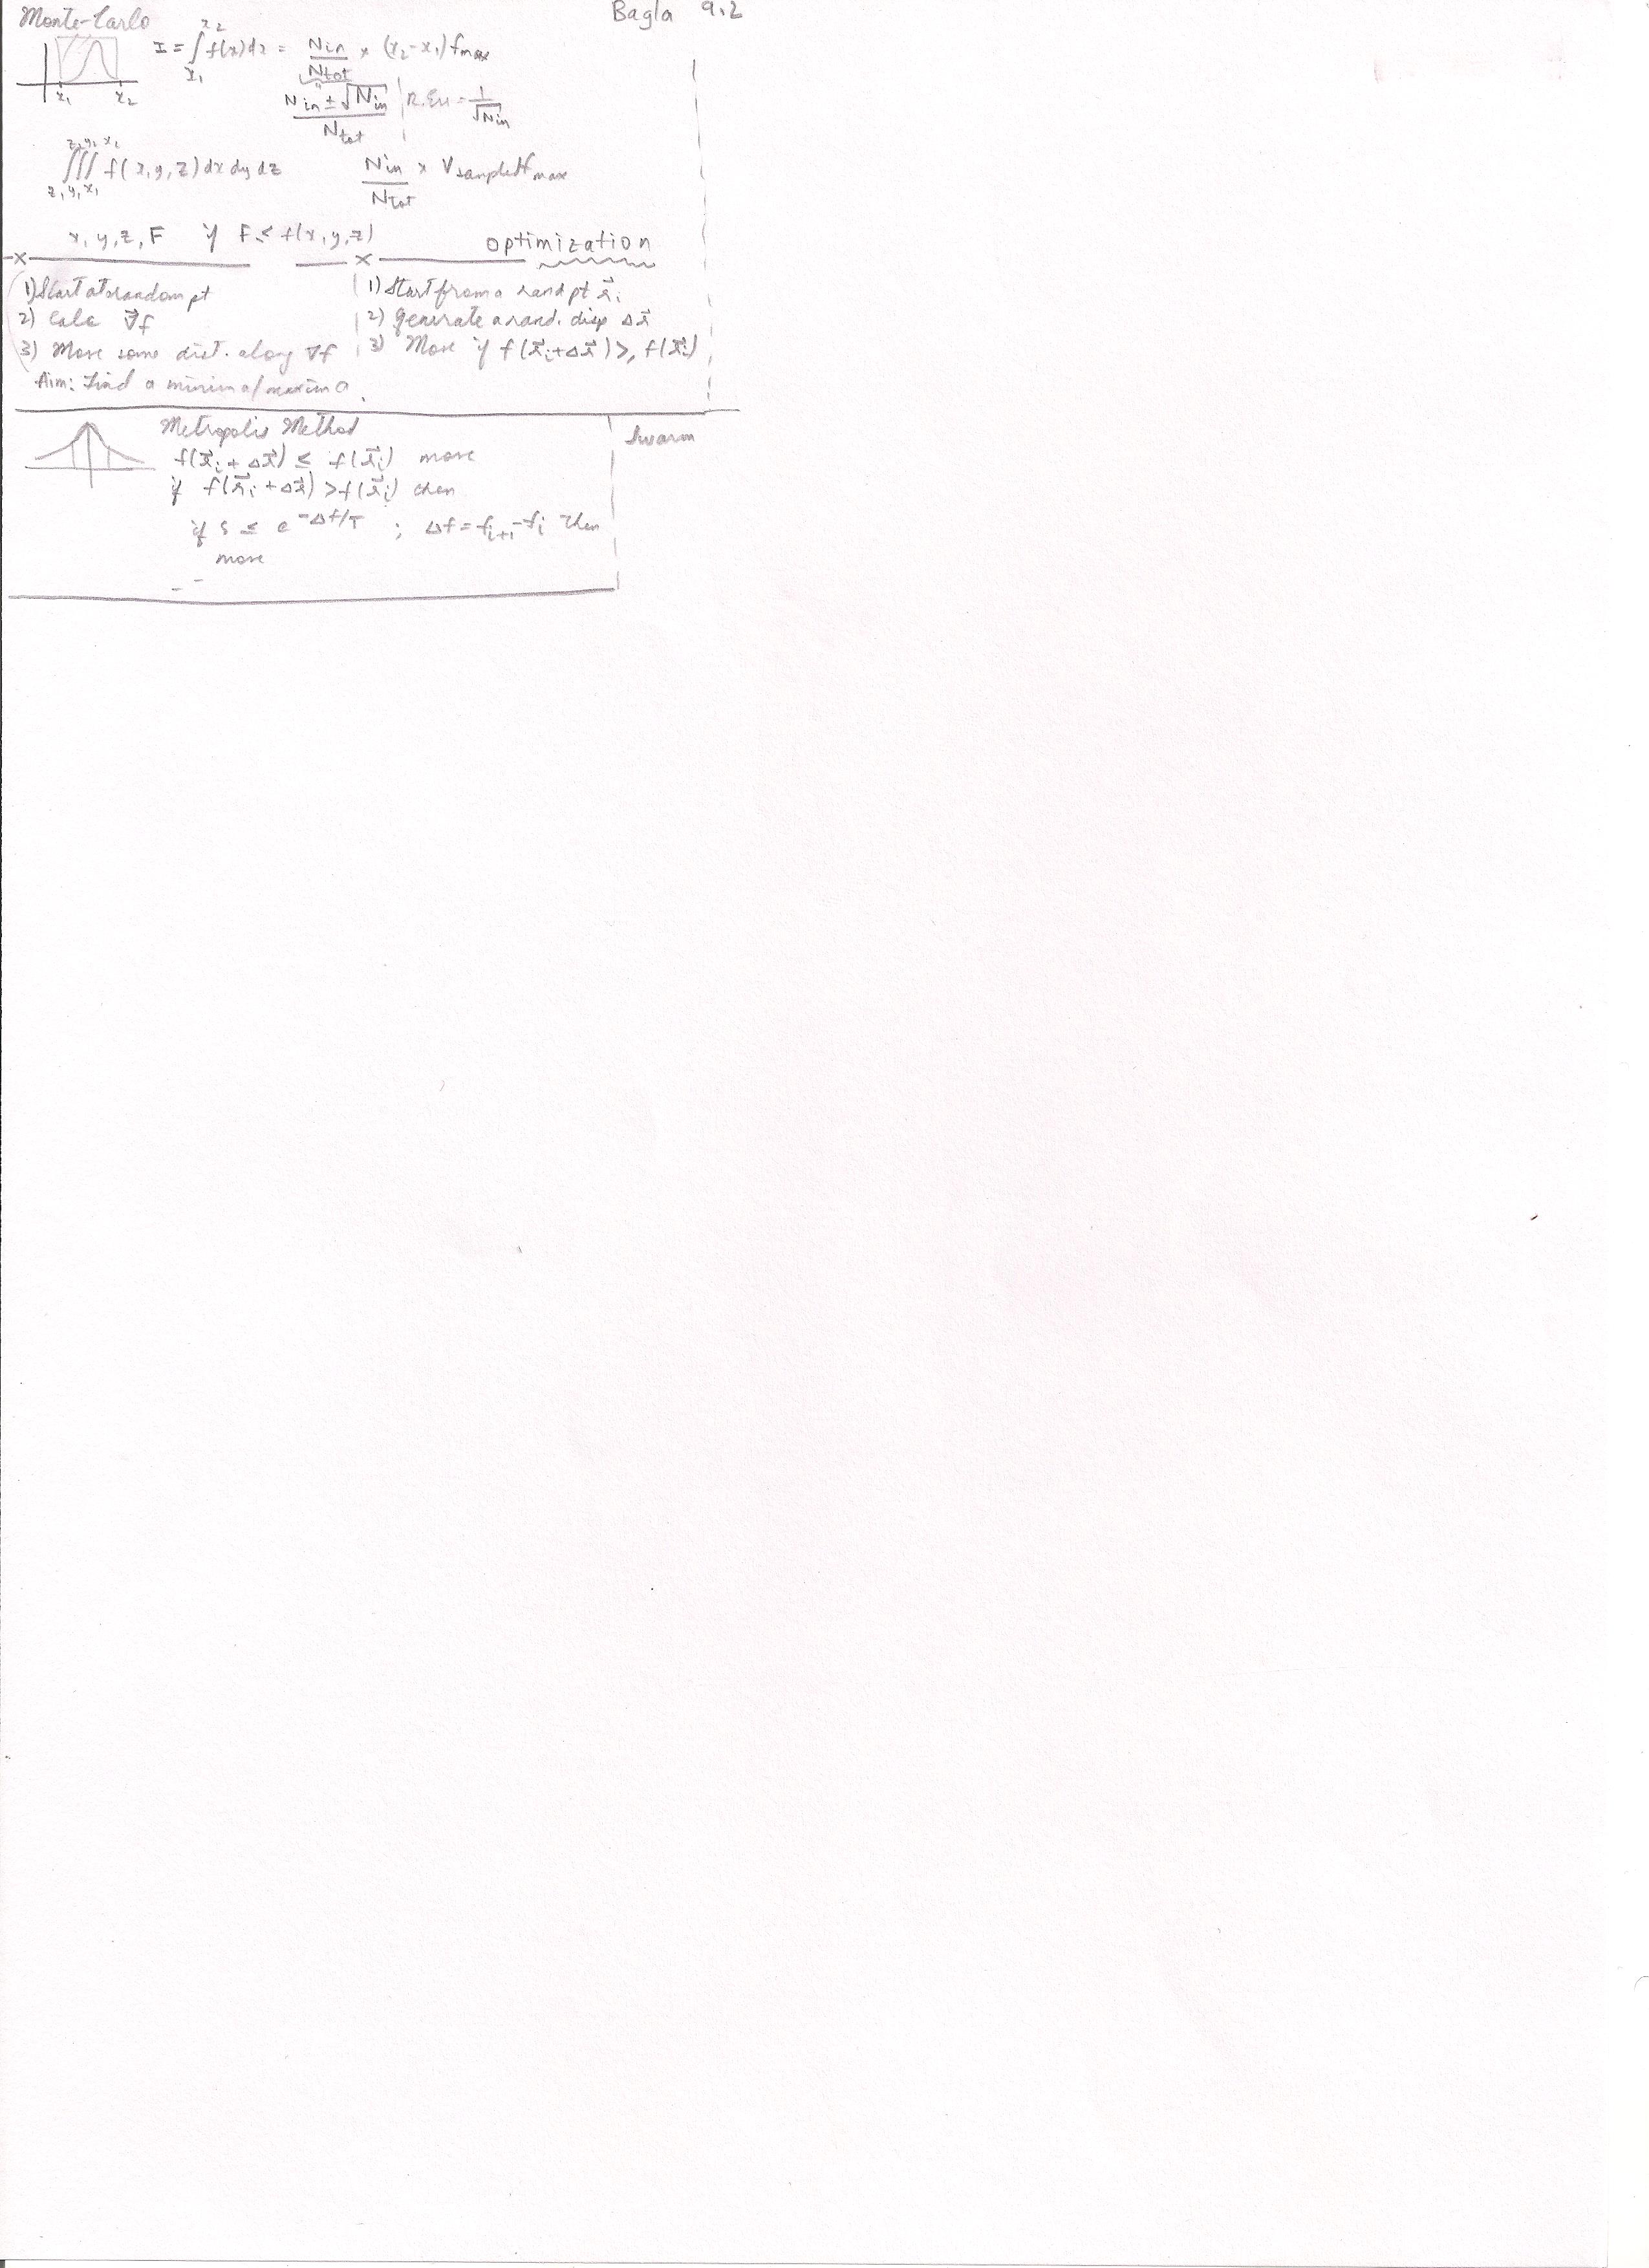 Monte-Carlo
Bagla 9.2
x₁ x₂
I = ∫_{x₁}^{x₂} f(x)dx = N_in/N_tot × (x₂-x₁) f_max
(N_in ± √N_in)/N_tot | R.Err = 1/√N_in
∫∫∫_{z₁ y₁ x₁}^{z₂ y₂ x₂} f(x,y,z) dx dy dz N_in/N_tot × V_sampled f_max
x, y, z, F if F ≤ f(x,y,z)
optimization
1) Start at random pt
2) Calc ∇⃗f
3) Move some dist. along ∇f
Aim: Find a minima/maxima.
1) Start from a rand pt r⃗ᵢ
2) Generate a rand. disp Δr⃗
3) Move if f(r⃗ᵢ+Δr⃗) ≥ f(r⃗ᵢ)
Metropolis Method
f(r⃗ᵢ + Δr⃗) ≤ f(r⃗ᵢ) move
if f(r⃗ᵢ + Δr⃗) > f(r⃗ᵢ) then
if s ≤ e^{-Δf/T} ; Δf = f_{i+1} - f_i then
move
Swarm